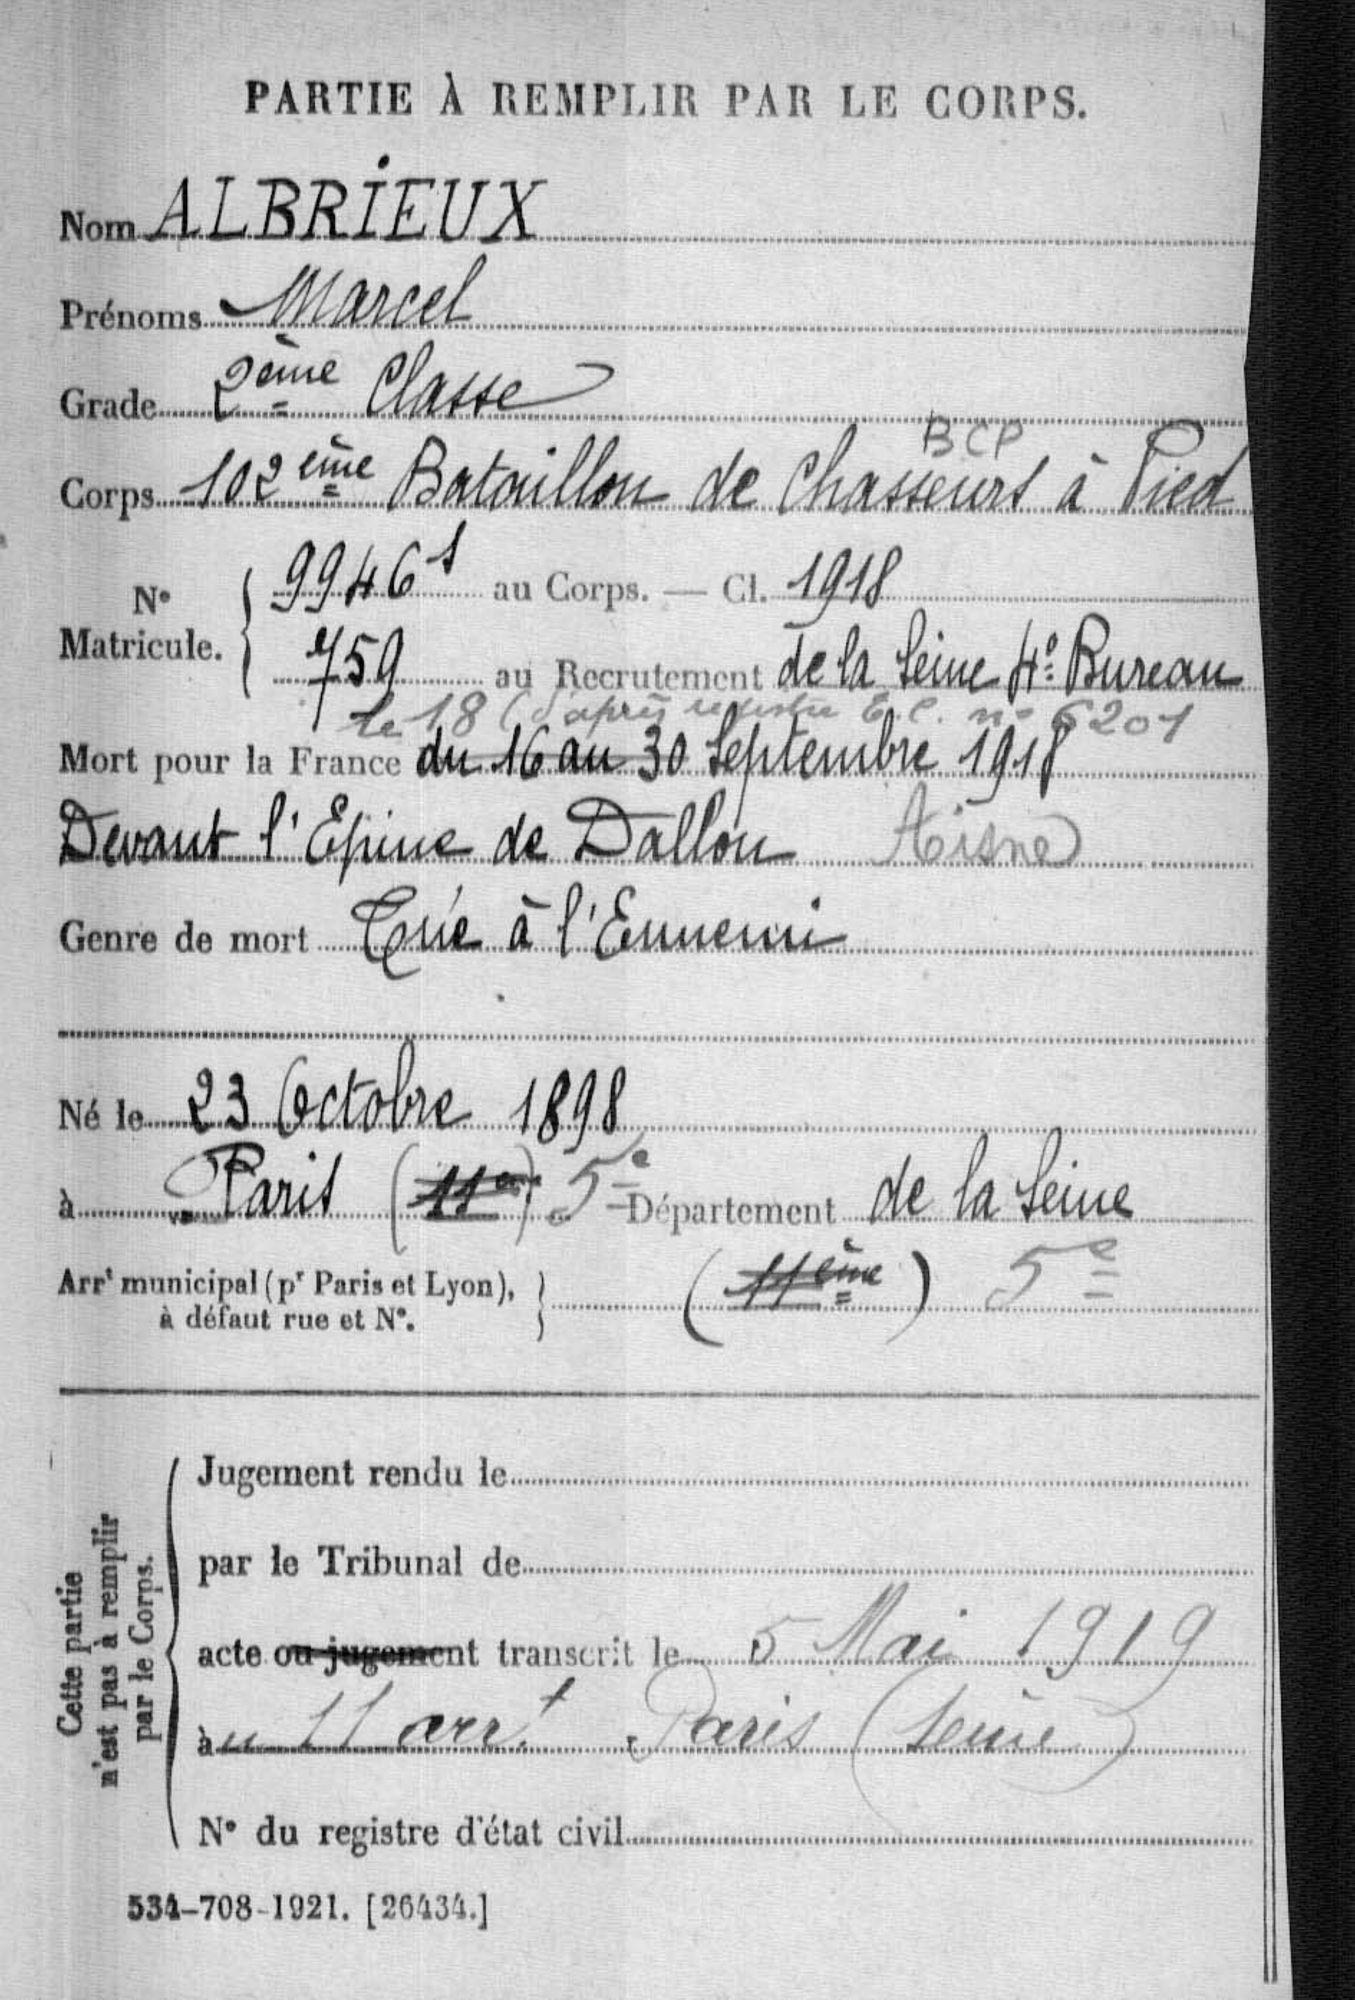 PARTIE À REMPLIR PAR LE CORPS.
Nom ALBRIEUX
Prénoms Marcel
Grade 2ème Classe
BCP
Corps 102ème Bataillon de Chasseurs à Pied
N° Matricule. { 99461 au Corps. — Cl. 1918
759 au Recrutement de la Seine 4e Bureau
le 18 (d'après registre E.C. n° 6201
Mort pour la France du 16 au 30 Septembre 1918
Devant l'Epine de Dallon Aisne
Genre de mort Tué à l'Ennemi
Né le 23 Octobre 1898
à Paris (11e) 5e Département de la Seine
Arrt municipal (pr Paris et Lyon), à défaut rue et N°. } (11ème) 5e
Cette partie n'est pas à remplir par le Corps.
Jugement rendu le
par le Tribunal de
acte ou jugement transcrit le 5 Mai 1919
au 11 arrt Paris (Seine)
N° du registre d'état civil
534-708-1921. [26434.]